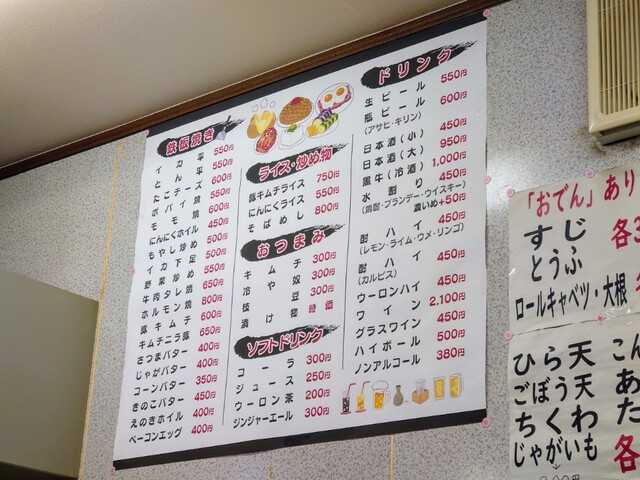 鉄板焼き
イカ平 550円
とん平 550円
たこチーズ 600円
ホバイ焼 550円
モモ焼 600円
にんにくホイル 450円
もやし炒め 500円
イカ下足 550円
野菜炒め 550円
牛肉タレ焼 650円
ホルモン焼 800円
豚キムチ 600円
キムチニラ豚 650円
さつまバター 400円
じゃがバター 400円
コーンバター 350円
きのこバター 450円
えのきホイル 400円
ベーコンエッグ 400円
ライス・炒め物
豚キムチライス 750円
にんにくライス 550円
そばめし 800円
おつまみ
キムチ 300円
冷や奴 300円
枝豆 300円
漬け物 時価
ソフトドリンク
コーラ 300円
ジュース 250円
ウーロン茶 200円
ジンジャーエール 300円
ドリンク
生ビール 550円
瓶ビール 600円
(アサヒ・キリン)
日本酒(小) 450円
日本酒(大) 950円
黒牛(冷酒) 1,000円
水割り 450円
(焼酎・ブランデー・ウイスキー)
濃いめ+50円
酎ハイ 450円
(レモン・ライム・ウメ・リンゴ)
酎ハイ 450円
(カルピス)
ウーロンハイ 450円
ワイン 2,100円
グラスワイン 450円
ハイボール 500円
ノンアルコール 380円
「おでん」あり
すじ
とうふ
各
ロールキャベツ・大根
ひら天
ごぼう天
ちくわ
じゃがいも
こん
あ
た
各